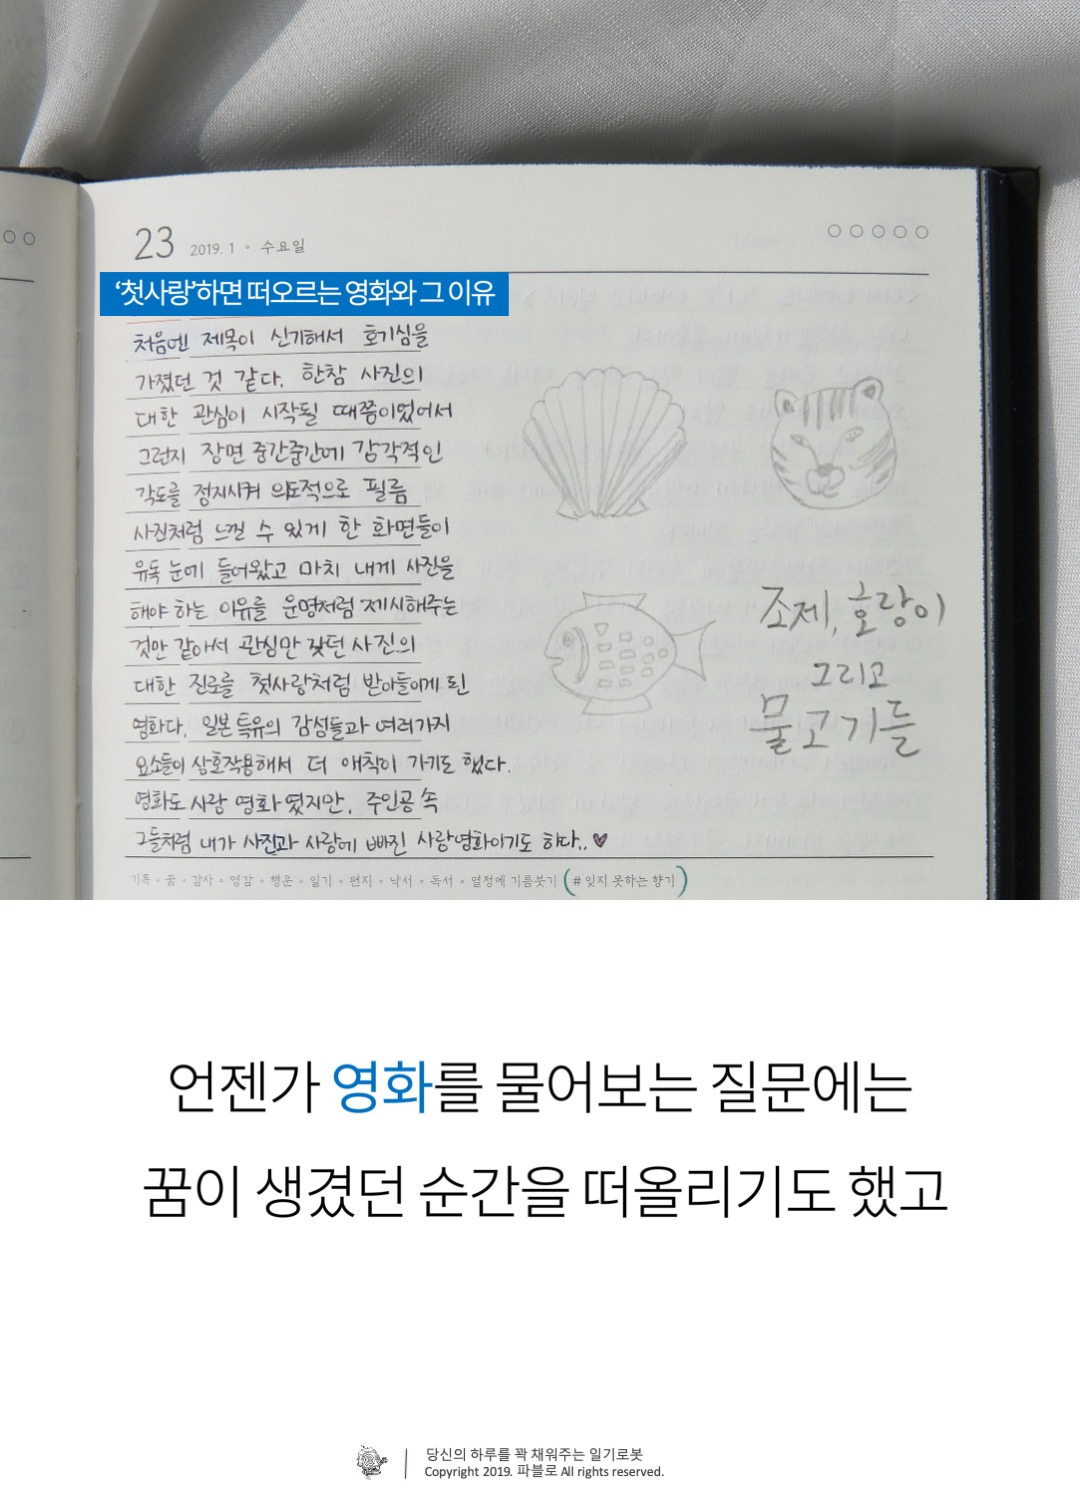 23 2019. 1 • 수요일
'첫사랑'하면 떠오르는 영화와 그 이유
처음엔 제목이 신기해서 호기심을
가졌던 것 같다. 한참 사진의
대한 관심이 시작될 때쯤이었어서
그런지 장면 중간중간에 감각적인
각도를 정지시켜 의도적으로 필름
사진처럼 느낄 수 있게 한 화면들이
유독 눈에 들어왔고 마치 내게 사진을
해야 하는 이유를 운명처럼 제시해주는
것만 같아서 관심만 갖던 사진의
대한 진로를 첫사랑처럼 받아들이게 된
영화다. 일본 특유의 감성들과 여러가지
요소들이 상호작용해서 더 애착이 가기도 했다.
영화도 사랑 영화였지만, 주인공 속
그들처럼 내가 사진과 사랑에 빠진 사랑영화이기도 하다..♥
조제, 호랑이
그리고
물고기들
기록 • 꿈 • 감사 • 영감 • 행운 • 일기 • 편지 • 낙서 • 독서 • 열정에 기름붓기 (# 잊지 못하는 향기)
언젠가 영화를 물어보는 질문에는
꿈이 생겼던 순간을 떠올리기도 했고
당신의 하루를 꽉 채워주는 일기로봇
Copyright 2019. 파블로 All rights reserved.